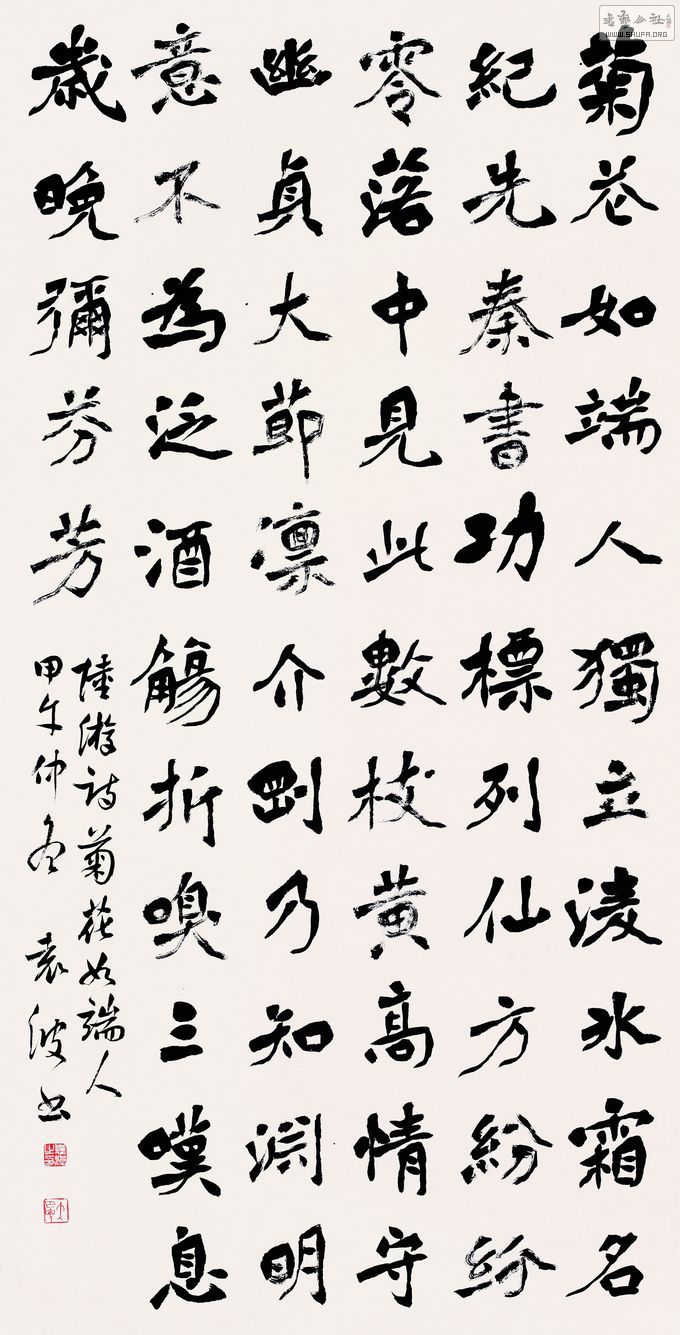 菊花如端人獨立淩氷霜名
紀先秦書功標列仙方紛紛
零落中見此數枝黄高情守
幽貞大節凛介剛乃知淵明
意不為泛酒觴折嗅三嘆息
歲晚彌芬芳
陸游詩菊花如端人
甲午仲冬 袁波书
書法公社
WWW.SHUFA.ORG